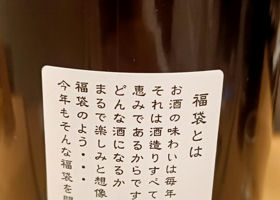 福袋とは
お酒の味わいは毎年
それは酒造りすべて
恵みであるからです
どんな酒になるか
まるで楽しみと想像
福袋のよう・・・
今年もそんな福袋を開